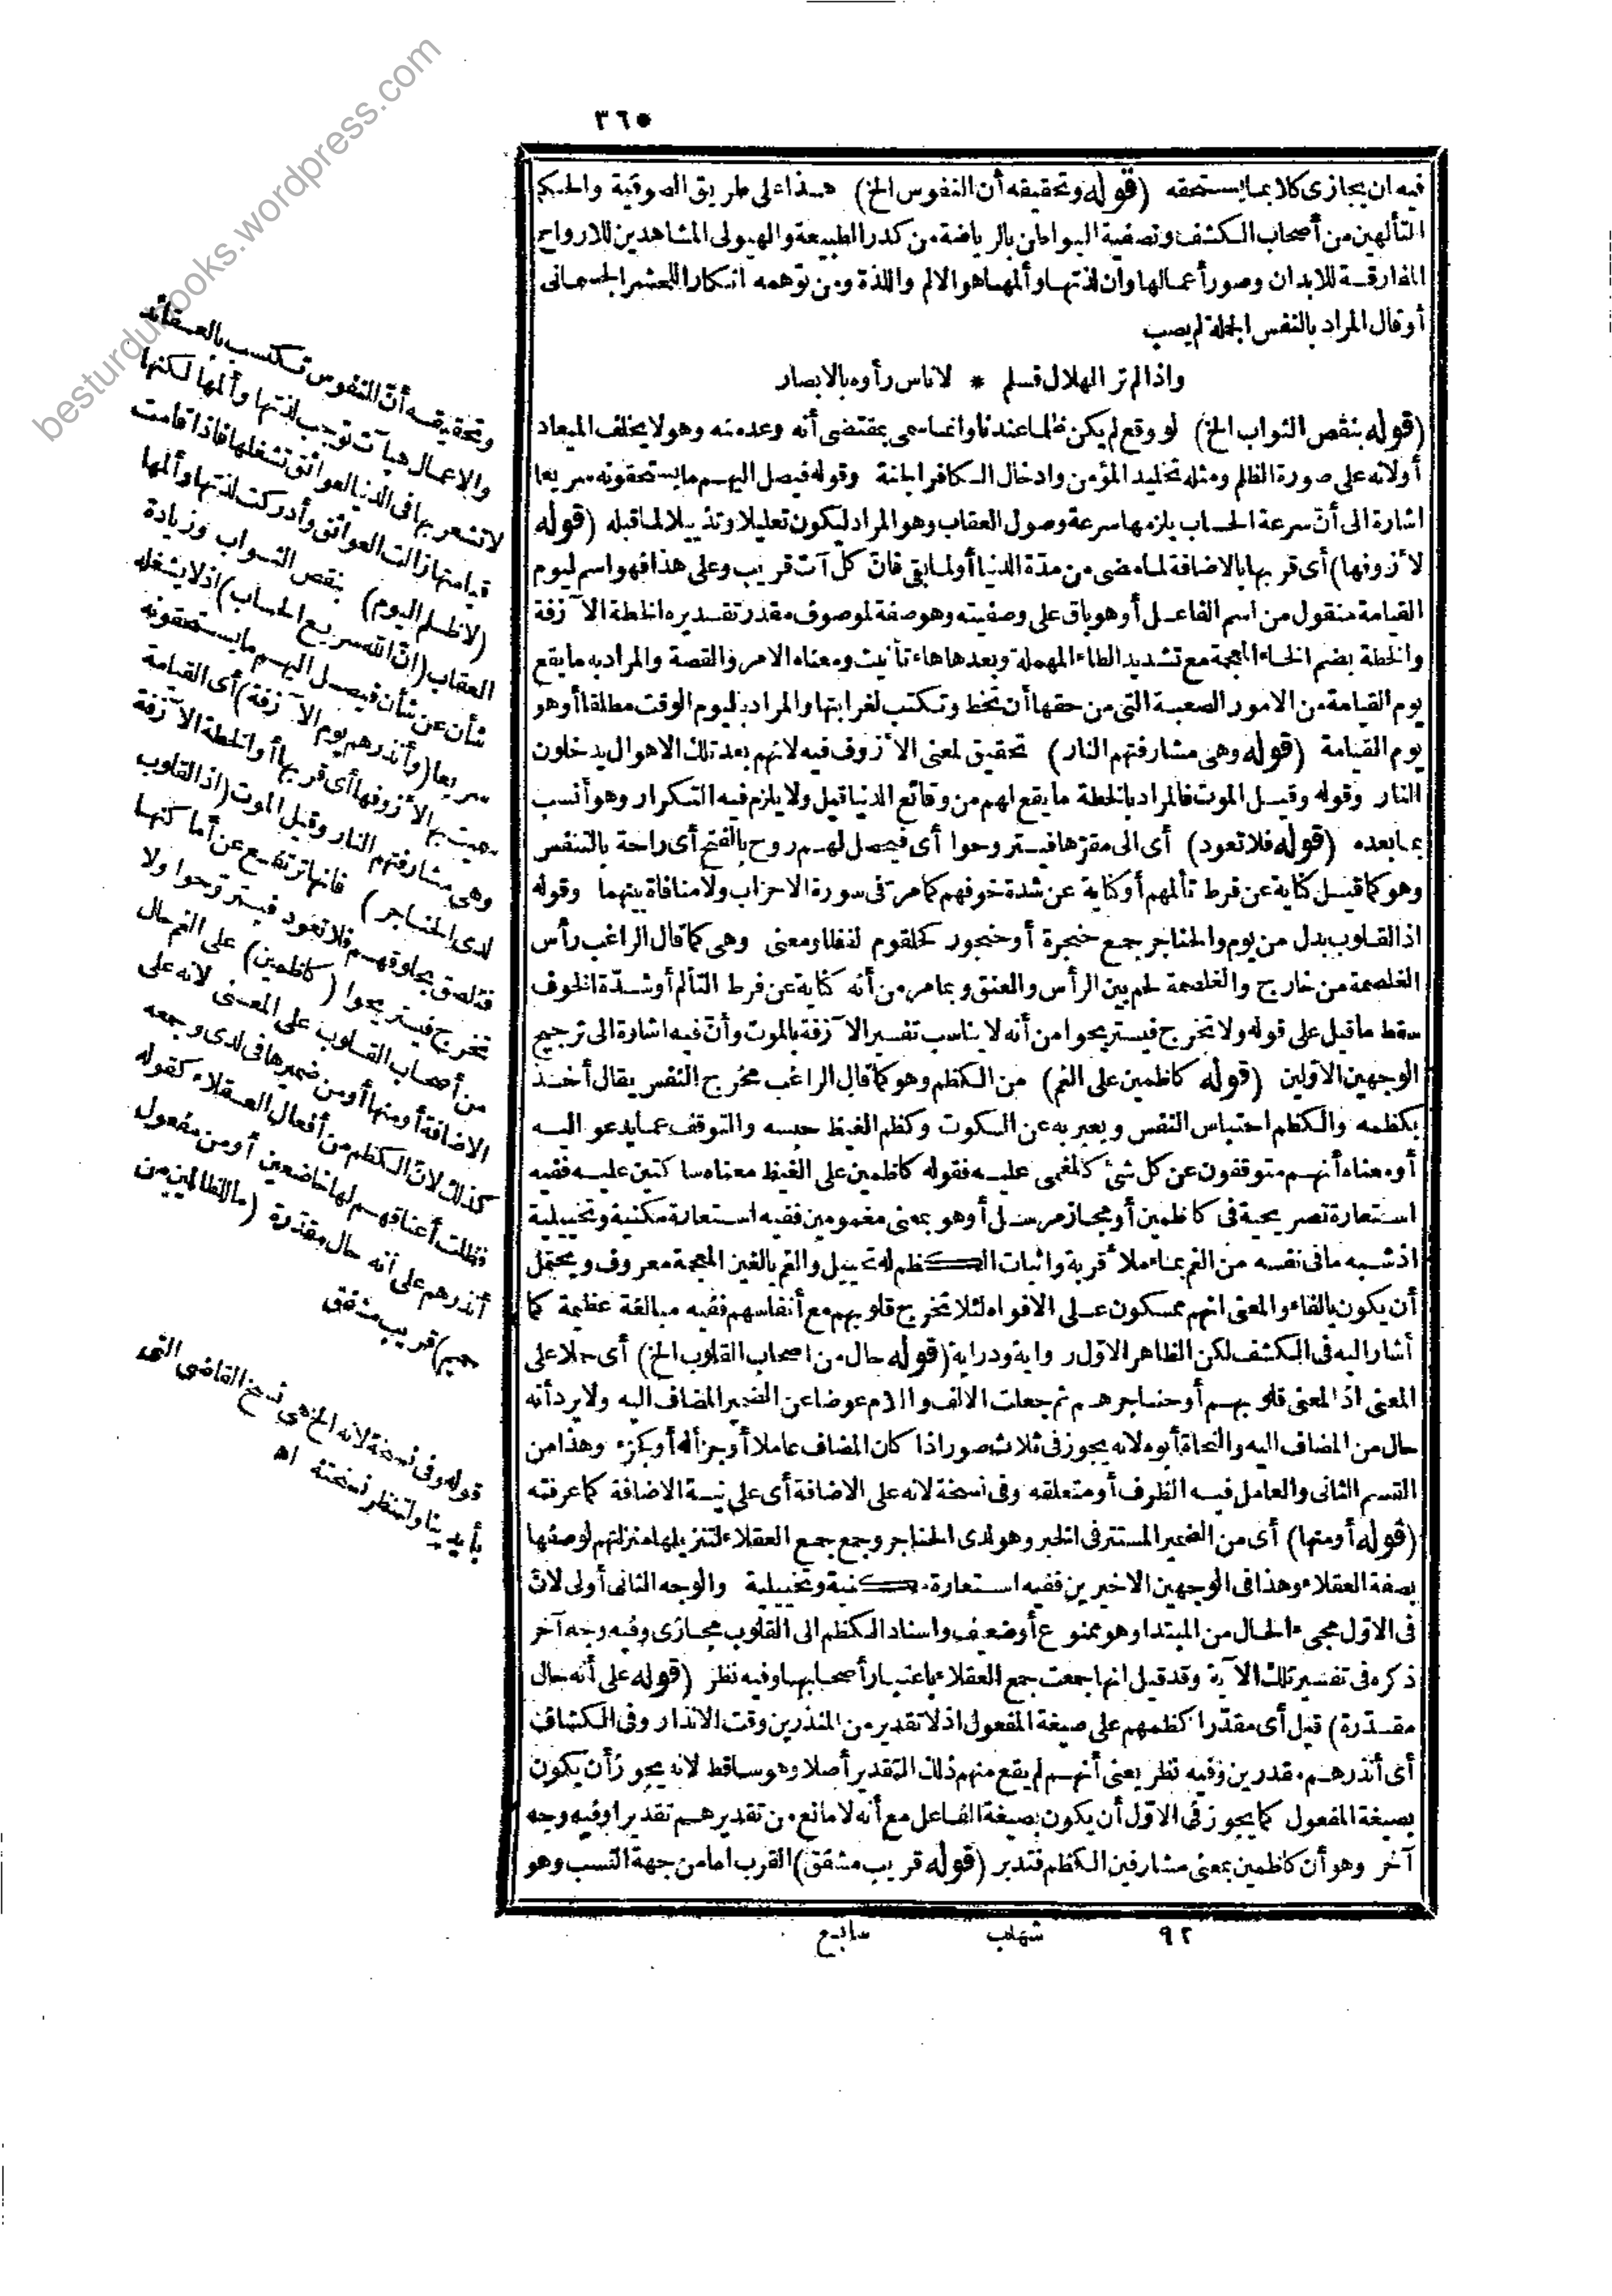 ٣٦٥
فيه ان يجازى كلا بما يستحقه (قوله وتحقيقه أن النفوس الخ) هذا على طريق الصوفية والحكم
المتألهين من أصحاب الكشف وتصفية البواطن بالرياضة من كدر الطبيعة والهيولى المشاهدين للارواح
المفارقة للابدان وصور أعمالها وان لذتها وألمها هو الالم واللذة ومن توهمه انكارا للحشر الجسمانى
أو قال المراد بالنفس الجملة لم يصب
واذا لم تر الهلال فسلم * لاناس رأوه بالابصار
(قوله بنقص الثواب الخ) لو وقع لم يكن ظلما عندنا وانما سمى بمقتضى أنه وعد منه وهو لا يخلف الميعاد
أو لانه على صورة الظلم ومثله تخليد المؤمن وادخال الكافر الجنة وقوله فيصل اليهم ما يستحقونه سريعا
اشارة الى أن سرعة الحساب يلزمها سرعة وصول العقاب وهو المراد ليكون تعليلا وتذييلا لما قبله (قوله
لأزوفها) أى قربها بالاضافة لما مضى من مدّة الدنيا أو لما بقى فان كلّ آت قريب وعلى هذا فهو اسم ليوم
القيامة منقول من اسم الفاعل أو هو باق على وصفيته وهو صفة لموصوف مقدر تقديره الخطة الآزفة
والخطة بضم الخاء المعجمة مع تشديد الطاء المهملة وبعدها هاء تأنيث ومعناه الامر والقصة والمراد به ما يقع
يوم القيامة من الامور الصعبة التى من حقها أن تخط وتكتب لغرابتها والمراد باليوم الوقت مطلقا أو هو
يوم القيامة (قوله وهى مشارفتهم النار) تحقيق لمعنى الأزوف فيه لانهم بعد تلك الاهوال يدخلون
النار وقوله وقيل الموت فالمراد بالخطة ما يقع لهم من وقائع الدنيا قيل ولا يلزم فيه التكرار وهو أنسب
بما بعده (قوله فلا تعود) أى الى مقرّها فيستروحوا أى فيحصل لهم روح بالفتح أى راحة بالتنفس
وهو كما قيل كناية عن فرط تألمهم أو كناية عن شدة خوفهم كما مرّ فى سورة الاحزاب ولا منافاة بينهما وقوله
اذ القلوب بدل من يوم والحناجر جمع حنجرة أو حنجور كحلقوم لفظا ومعنى وهى كما قال الراغب رأس
الغلصمة من خارج والغلصمة لحم بين الرأس والعنق وبما مر من أنه كناية عن فرط التألم أو شدّة الخوف
سقط ما قيل على قوله ولا تخرج فيستريحوا من أنه لا يناسب تفسير الآزفة بالموت وأن فيه اشارة الى ترجيح
الوجهين الاوّلين (قوله كاظمين على الغم) من الكظم وهو كما قال الراغب مخرج النفس يقال أخذ
بكظمه والكظم احتباس النفس ويعبر به عن السكوت وكظم الغيظ حبسه والتوقف عما يدعو اليه
أو معناه أنهم متوقفون عن كل شئ كالمغمى عليه فقوله كاظمين على الغيظ معناه ساكتين عليه ففيه
استعارة تصريحية فى كاظمين أو مجاز مرسل أو هو بمعنى مغمومين ففيه استعارة مكنية وتخييلية
اذ شبه ما فى نفسه من الغم بماء ملأ قربة واثبات الكظم له تخييل والغم بالغين المعجمة معروف ويحتمل
أن يكون بالفاء والمعنى انهم ممسكون على الافواه لئلا تخرج قلوبهم مع أنفاسهم ففيه مبالغة عظيمة كما
أشار اليه فى الكشف لكن الظاهر الاوّل رواية ودراية (قوله حال من اصحاب القلوب الخ) أى حملا على
المعنى اذ المعنى قلوبهم أو حناجرهم ثم جعلت الالف واللام عوضا عن الضمير المضاف اليه ولا يرد أنه
حال من المضاف اليه والنحاة أبوه لانه يجوز فى ثلاث صور اذا كان المضاف عاملا أو جزأ له أو كجزء وهذا من
القسم الثانى والعامل فيه الظرف أو متعلقه وفى نسخة لانه على الاضافة أى على نية الاضافة كما عرفته
(قوله أو منها) أى من الضمير المستتر فى الخبر وهو لدى الحناجر وجمع جمع العقلاء لتنزيلها منزلتهم لوصفها
بصفة العقلاء وهذا فى الوجهين الاخيرين ففيه استعارة مكنية وتخييلية والوجه الثانى أولى لان
فى الاوّل مجىء الحال من المبتدا وهو ممنوع أو ضعيف واسناد الكظم الى القلوب مجازى وفيه وجه آخر
ذكره فى تفسير تلك الآية وقد قيل انها جمعت جمع العقلاء باعتبار أصحابها وفيه نظر (قوله على أنه حال
مقدّرة) قيل أى مقدّرا كظمهم على صيغة المفعول اذ لا تقدير من المنذرين وقت الانذار وفى الكشاف
أى أنذرهم مقدرين وفيه نظر يعنى أنهم لم يقع منهم ذلك التقدير أصلا وهو ساقط لانه يجوز أن يكون
بصيغة المفعول كما يجوز فى الاوّل أن يكون بصيغة الفاعل مع أنه لا مانع من تقديرهم تقديرا وفيه وجه
آخر وهو أن كاظمين بمعنى مشارفين الكظم فتدبر (قوله قريب مشفق) القرب اما من جهة النسب وهو
٩٢ شهاب سابع
وتحقيقه أنّ النفوس تكتسب بالعقائد
والاعمال هيآت توجب لذتها وألمها لكنها
لا تشعر بها فى الدنيا لعوائق تشغلها فاذا قامت
قيامتها زالت العوائق وأدركت لذتها وألمها
(لا ظلم اليوم) بنقص الثواب وزيادة
العقاب (انّ الله سريع الحساب) اذ لا يشغله
شأن عن شأن فيصل اليهم ما يستحقونه
سريعا (وأنذرهم يوم الآزفة) أى القيامة
سميت بها لأزوفها أى قربها أو الخطة الآزفة
وهى مشارفتهم النار وقيل الموت (اذ القلوب
لدى الحناجر) فانها ترتفع عن أماكنها
فتلصق بحلوقهم فلا تعود فيستروحوا ولا
تخرج فيستريحوا (كاظمين) على الغم حال
من أصحاب القلوب على المعنى لانه على
الاضافة أو منها أو من ضميرها فى لدى وجمعه
كذلك لانّ الكظم من أفعال العقلاء كقوله
فظلت أعناقهم لها خاضعين أو من مفعول
أنذرهم على أنه حال مقدّرة (ما للظالمين من
حميم) قريب مشفق
قوله وفى نسخة لانه الخ هى نسخ القاضى التى
بأيدينا ولتنظر نسخته اه
besturdubooks.wordpress.com